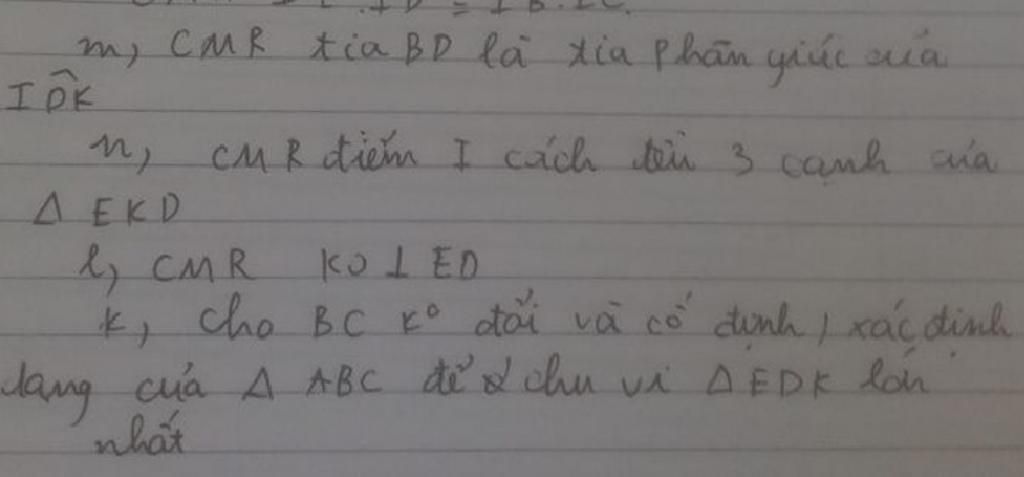 = IB.IC.
m, CMR tia BD là tia phân giác của
IDK
n, CMR điểm I cách đều 3 cạnh của
Δ EKD
l, CMR KO ⊥ ED
k, Cho BC K° đổi và cố định, xác định
dạng của Δ ABC để chu vi Δ EDK lớn
nhất